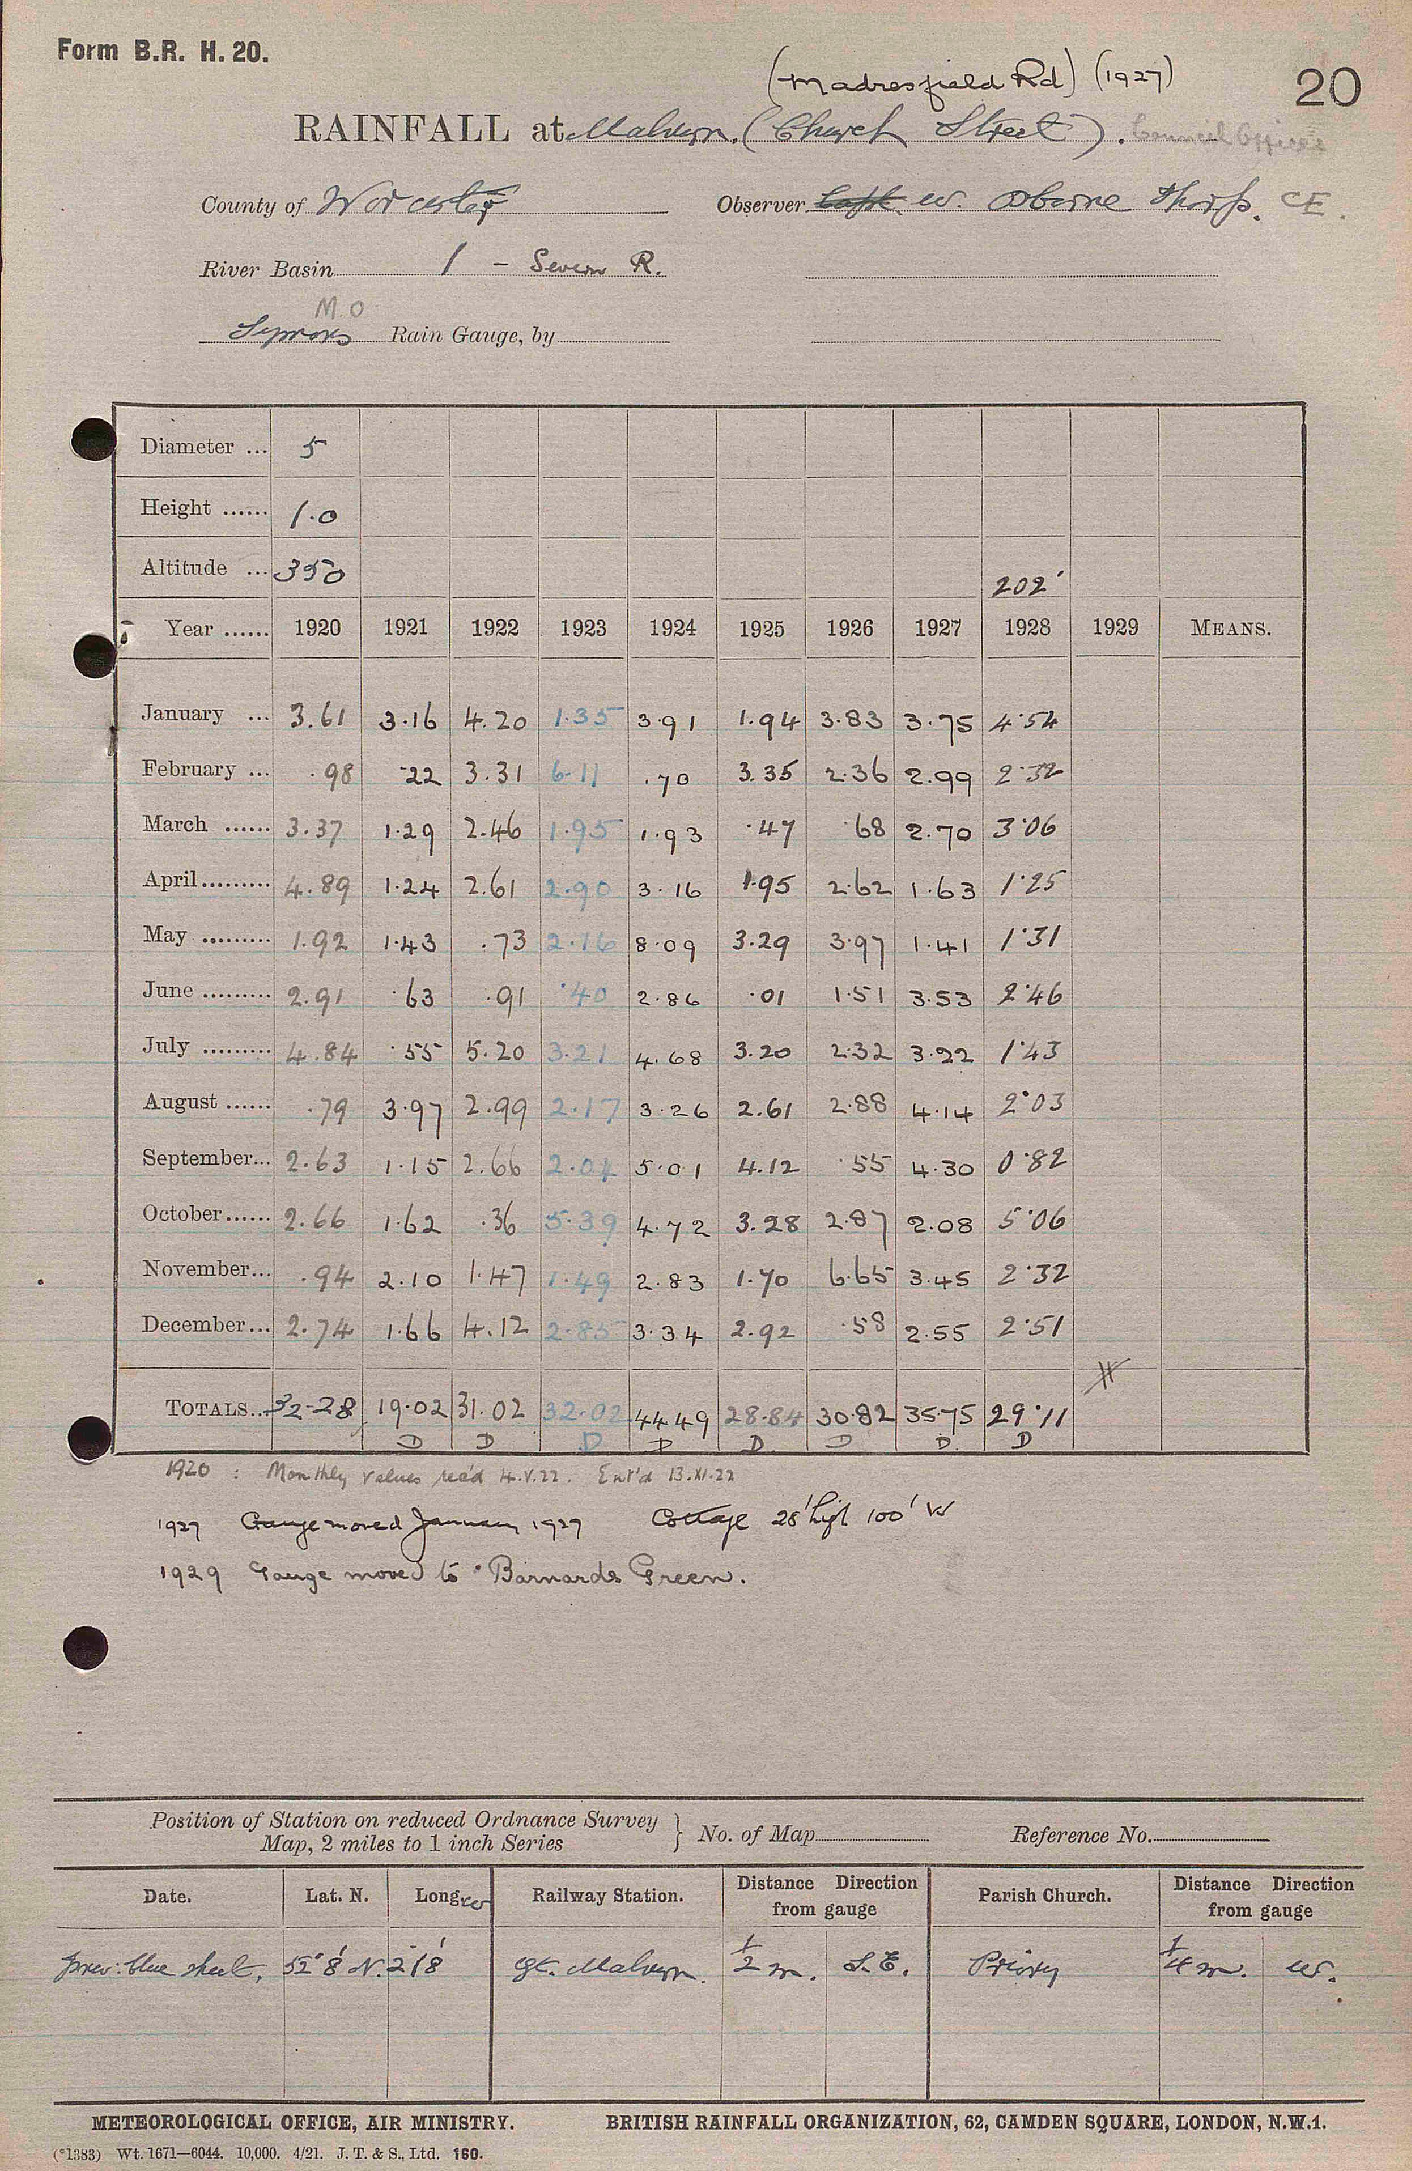 Form B.R. H. 20.
(Madresfield Rd) (1927)
20
RAINFALL at Malvern. (Church Street). Council Offices
County of Worcester Observer Capt. W. Osborne Thorp. CE.
River Basin 1 - Severn R.
M.O
Symons Rain Gauge, by
Diameter ... 5
Height ...... 1.0
Altitude ... 350 202'
Year ...... 1920 1921 1922 1923 1924 1925 1926 1927 1928 1929 MEANS.
January ... 3.61 3.16 4.20 1.35 3.91 1.94 3.83 3.75 4.54
February ... .98 .22 3.31 6.11 .70 3.35 2.36 2.99 2.32
March ...... 3.37 1.29 2.46 1.95 1.93 .47 .68 2.70 3.06
April ......... 4.89 1.24 2.61 2.90 3.16 1.95 2.62 1.63 1.25
May ......... 1.92 1.43 .73 2.16 8.09 3.29 3.97 1.41 1.31
June ......... 2.91 .63 .91 .40 2.86 .01 1.51 3.53 2.46
July ......... 4.84 .55 5.20 3.21 4.68 3.20 2.32 3.22 1.43
August ...... .79 3.97 2.99 2.17 3.26 2.61 2.88 4.14 2.03
September... 2.63 1.15 2.66 2.04 5.01 4.12 .55 4.30 0.82
October...... 2.66 1.62 .36 5.39 4.72 3.28 2.87 2.08 5.06
November... .94 2.10 1.47 1.49 2.83 1.70 6.65 3.45 2.32
December... 2.74 1.66 4.12 2.85 3.34 2.92 .58 2.55 2.51
TOTALS... 32.28 19.02 31.02 32.02 44.49 28.84 30.82 35.75 29.11
D D D D D D D D
1920 : Monthly values rec'd 4.V.22. Ent'd 13.XI.22
1927 Gauge moved January 1927 Cottage 28' high 100' W
1929 Gauge moved to Barnards Green.
Position of Station on reduced Ordnance Survey
Map, 2 miles to 1 inch Series } No. of Map Reference No.
Date. Lat. N. Long. W Railway Station. Distance Direction from gauge Parish Church. Distance Direction from gauge
prev: blue sheet. 52° 8' N. 2° 18' Gt. Malvern. 1/2 m. S.E. Priory 1/4 m. W.
METEOROLOGICAL OFFICE, AIR MINISTRY. BRITISH RAINFALL ORGANIZATION, 62, CAMDEN SQUARE, LONDON, N.W.1.
(*1383) Wt. 1671—6044. 10,000. 4/21. J. T. & S., Ltd. 160.